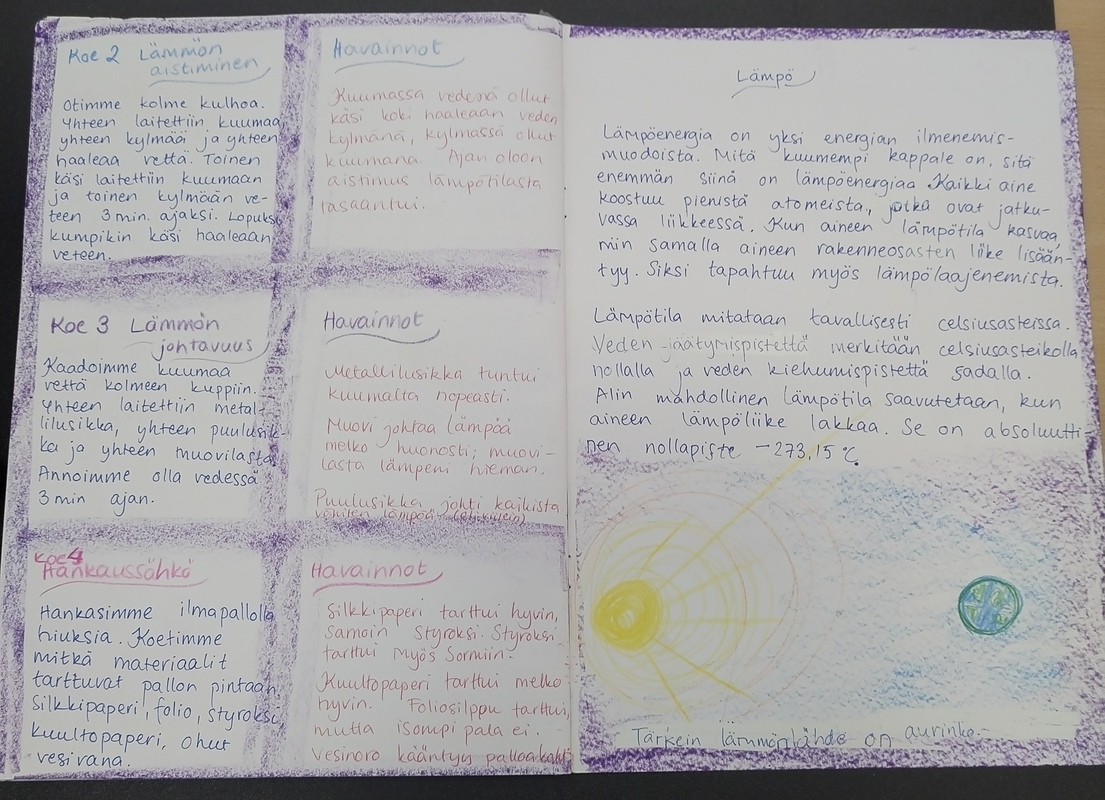 Koe 2 Lämmön
aistiminen
Otimme kolme kulhoa.
Yhteen laitettiin kuumaa
yhteen kylmää ja yhteen
haaleaa vettä. Toinen
käsi laitettiin kuumaan
ja toinen kylmään ve-
teen 3 min. ajaksi. Lopuksi
kumpikin käsi haaleaan
veteen.
Havainnot
Kuumassa vedessä ollut
käsi koki haaleaan veden
kylmänä, kylmässä ollut
kuumana. Ajan oloon
aistimus lämpötilasta
tasaantui.
Koe 3 Lämmön
johtavuus
Kaadoimme kuumaa
vettä kolmeen kuppiin.
Yhteen laitettiin metal-
lilusikka, yhteen puulusik-
ka ja yhteen muovilasta.
Annoimme olla vedessä
3 min ajan.
Havainnot
Metallilusikka tuntui
kuumalta nopeasti.
Muovi johtaa lämpöä
melko huonosti; muovi-
lasta lämpeni hieman.
Puulusikka johti kaikista
vähiten lämpöä
Koe 4
Hankaussähkö
Hankasimme ilmapallolla
hiuksia. Koetimme
mitkä materiaalit
tarttuvat pallon pintaan
silkkipaperi, folio, styroksi,
kuultopaperi, ohut
vesivana.
Havainnot
Silkkipaperi tarttui hyvin,
samoin styroksi. Styroksi
tarttui myös sormiin.
Kuultopaperi tarttui melko
hyvin. Foliosilppu tarttui,
mutta isompi pala ei.
Vesinoro kääntyy palloa kohti
Lämpö
Lämpöenergia on yksi energian ilmenemis-
muodoista. Mitä kuumempi kappale on, sitä
enemmän siinä on lämpöenergiaa. Kaikki aine
koostuu pienistä atomeista, jotka ovat jatku-
vassa liikkeessä. Kun aineen lämpötila kasvaa,
niin samalla aineen rakenneosasten liike lisään-
tyy. Siksi tapahtuu myös lämpölaajenemista.
Lämpötila mitataan tavallisesti celsiusasteissa.
Veden jäätymispistettä merkitään celsiusasteikolla
nollalla ja veden kiehumispistettä sadalla.
Alin mahdollinen lämpötila saavutetaan, kun
aineen lämpöliike lakkaa. Se on absoluutti-
nen nollapiste -273,15 °C.
Tärkein lämmönlähde on aurinko.